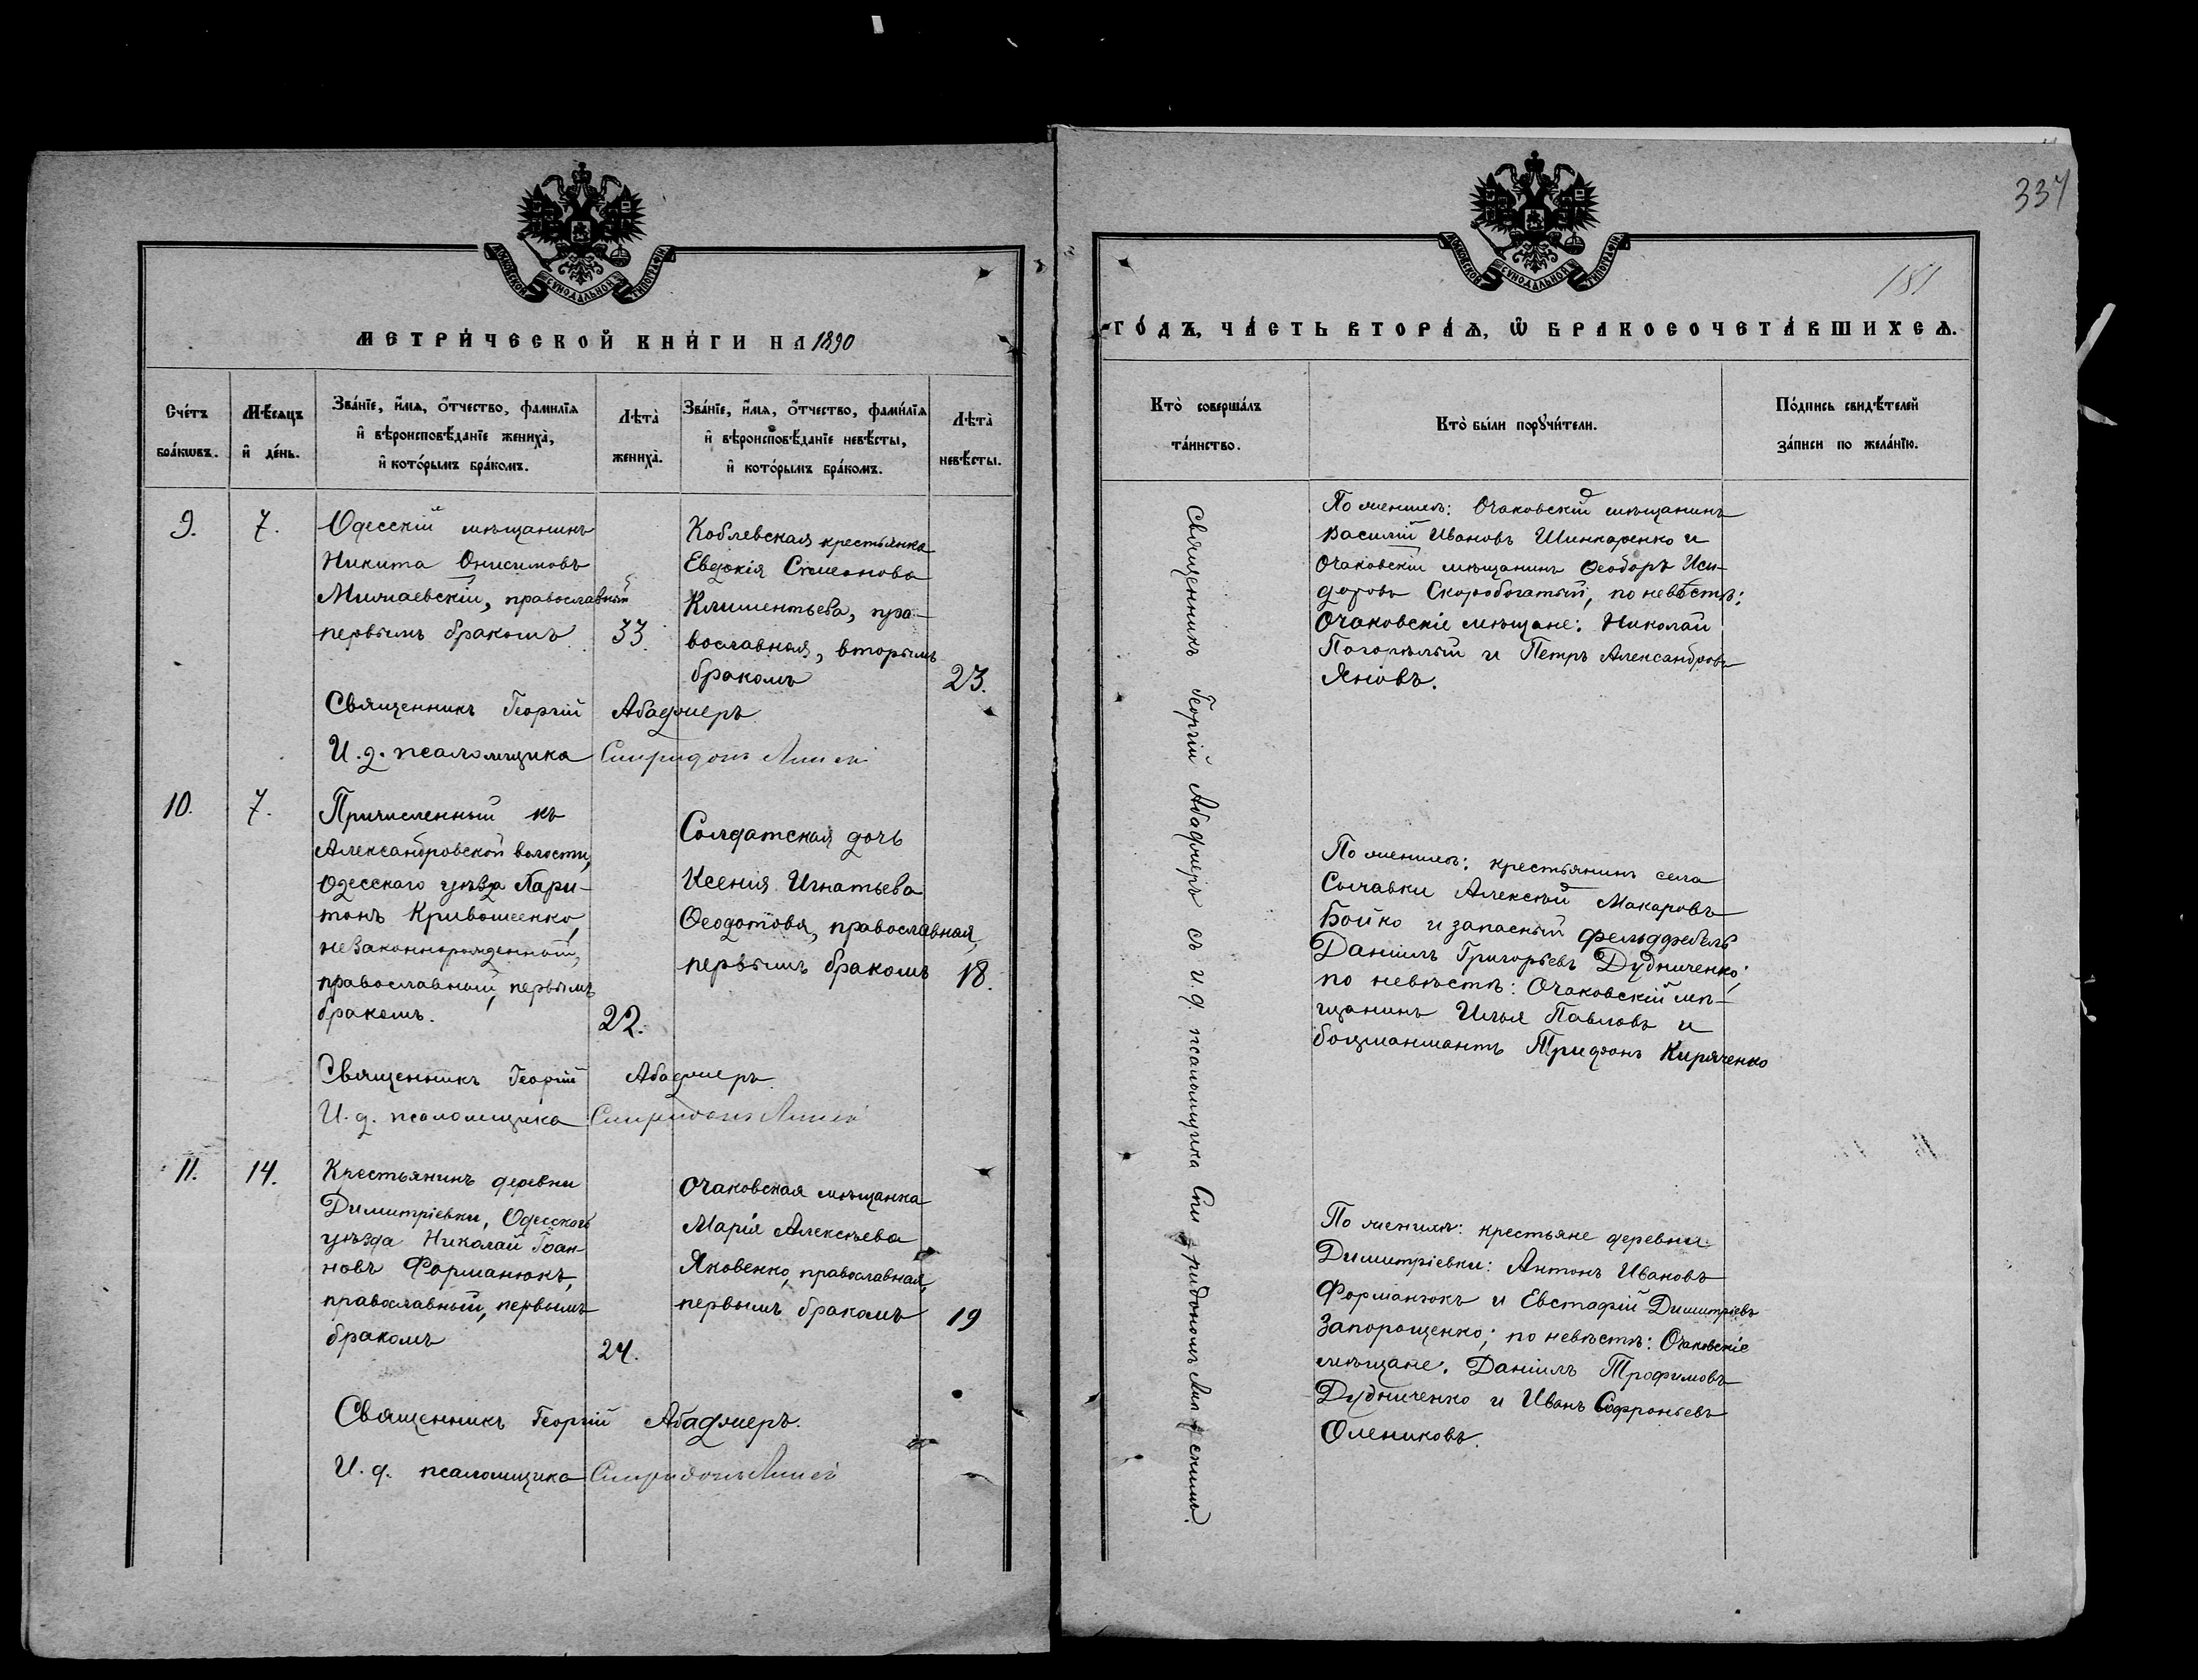 337
181
МОСКОВСКОЙ СѴНОДАЛЬНОЙ ТИПОГРАФІИ
МЕТРИ́ЧЕСКОЙ КНИ́ГИ НА 1890
Сче́тъ бра́кѡвъ.
Мѣ́сяцъ и҆ де́нь.
Зва́нїе, и҆́мѧ, ѻ҆́тчество, фами́лїѧ
и҆ вѣроисповѣ́данїе жениха̀,
и҆ кото́рымъ бра́комъ.
Лѣта̀ жениха̀.
Зва́нїе, и҆́мѧ, ѻ҆́тчество, фами́лїѧ
и҆ вѣроисповѣ́данїе невѣ́сты,
и҆ кото́рымъ бра́комъ.
Лѣта̀ невѣ́сты.
9.
7.
Одесскій мѣщанинъ
Никита Онисимовъ
православный
первымъ бракомъ.
33.
Коблевская крестьянка
Евдокія Симеонова
Климентьева, пра-
вославная, вторымъ
бракомъ
23.
Священникъ Георгій Абаджіеръ.
И. д. псаломщика Спиридонъ
10.
7.
Причисленный къ
Александровской волости,
Одесскаго уѣзда Хари-
тонъ Кривошеенко,
незаконнорожденный,
православный, первымъ
бракомъ.
22.
Солдатская дочь
Ксенія Игнатьева
Ѳеодотова, православная,
первымъ бракомъ
18.
Священникъ Георгій Абаджіеръ.
И. д. псаломщика Спиридонъ
11.
14.
Крестьянинъ деревни
Димитріевки, Одесскаго
уѣзда Николай Іоан-
новъ Форманюкъ,
православный, первымъ
бракомъ
24.
Очаковская мѣщанка
Марія Алексѣева
Яковенко, православная,
первымъ бракомъ
19
Священникъ Георгій Абаджіеръ.
И. д. псаломщика Спиридонъ
МОСКОВСКОЙ СѴНОДАЛЬНОЙ ТИПОГРАФІИ
ГО́ДЪ, ЧА́СТЬ ВТОРА́Ѧ, Ѽ БРАКОСОЧЕТА́ВШИХСѦ.
Кто̀ соверша́лъ
та́инство.
Кто̀ бы́ли порꙋчи́тели.
По́дпись свидѣ́телей
за́писи по жела́нїю.
Священникъ Георгій Абаджіеръ съ и. д. псаломщика Спиридономъ
По женихѣ: Очаковскій мѣщанинъ
Василій Ивановъ Шинкаренко и
Очаковскій мѣщанинъ Ѳеодоръ Иси-
доровъ Скоробогатый, по невѣстѣ:
Очаковскіе мѣщане: Николай
Погорѣлый и Петръ Александровъ
Яновъ.
По женихѣ: крестьянинъ села
Сычавки Алексѣй Макаровъ
Бойко и запасный фельдфебель
Даніилъ Григорьевъ Дудниченко;
по невѣстѣ: Очаковскій мѣ-
щанинъ Илья Павловъ и
боцманматъ Трифонъ Киряченко
По женихѣ: крестьяне деревни
Димитріевки: Антонъ Ивановъ
Форманюкъ и Евстафій Димитріевъ
Запорощенко; по невѣстѣ: Очаковскіе
мѣщане: Даніилъ Трофимовъ
Дудниченко и Иванъ Софроньевъ
Олениковъ.